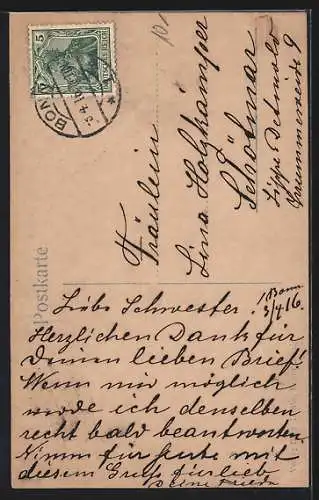 10
5
DEUTSCHES REICH
BONN
Postkarte
Fräulein
Lina Holzkämper
Schötmar
Lippe Detmold
Krummeweide 9
Bonn
3/4.16.
Liebe Schwester!
Herzlichen Dank für
Deinen lieben Brief!
Wenn mir möglich
werde ich denselben
recht bald beantworten.
Nimm für heute mit
diesem Gruß fürlieb
Deine Frieda